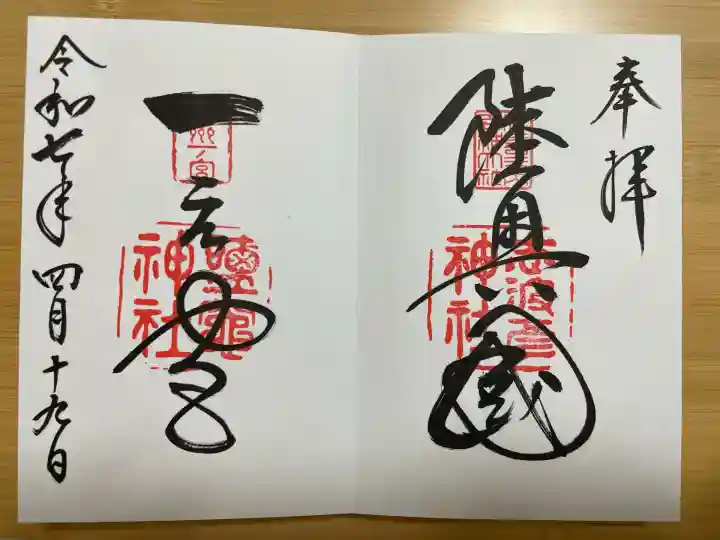 奉拝
陸奥國
志波彦
神社
一之宮
鹽竈
神社
令和七年四月十九日